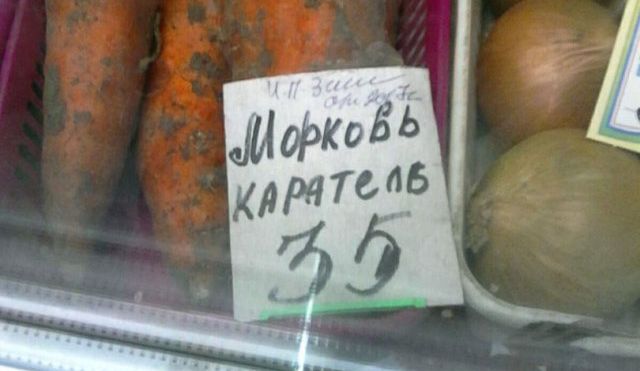 И.П.
Морковь
КАРАТЕЛЬ
35